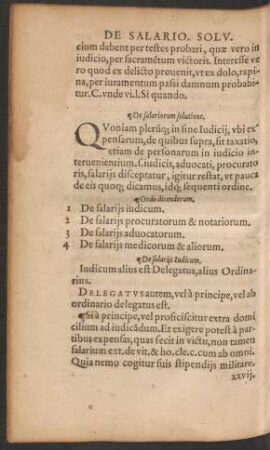 DE SALARIO. SOLV.
cium debent per testes probari, quæ vero in
iudicio, per sacramētum victoris. Interesse ve
ro quod ex delicto prouenit, vt ex dolo, rapi-
na, per iuramentum passi damnum probabi-
tur. C. vnde vi. l. Si quando.
¶ De salariorum solutione.
QVoniam plerūq; in fine Iudicij, vbi ex
pensarum, de quibus supra, sit taxatio,
etiam de personarum in iudicio in
teruenientium. s. iudicis, aduocati, procurato
ris, salarijs disceptatur, igitur restat, vt pauca
de eis quoq; dicamus, idq; sequenti ordine.
¶ Ordo dicendorum.
1 De salarijs iudicum.
2 De salarijs procuratorum & notariorum.
3 De salarijs aduocatorum.
4 De salarijs medicorum & aliorum.
¶ De salarijs Iudicum.
Iudicum alius est Delegatus, alius Ordina-
rius.
DELEGATVS autem, vel à principe, vel ab
ordinario delegatus est.
¶ Si à principe, vel proficiscitur extra domi
cilium ad iudicādum. Et exigere potest à par
tibus expensas, quas fecit in victu, non tamen
salarium ext. de vit. & ho. cle. c. cum ab omni.
Quia nemo cogitur suis stipendijs militare.
xxvij.